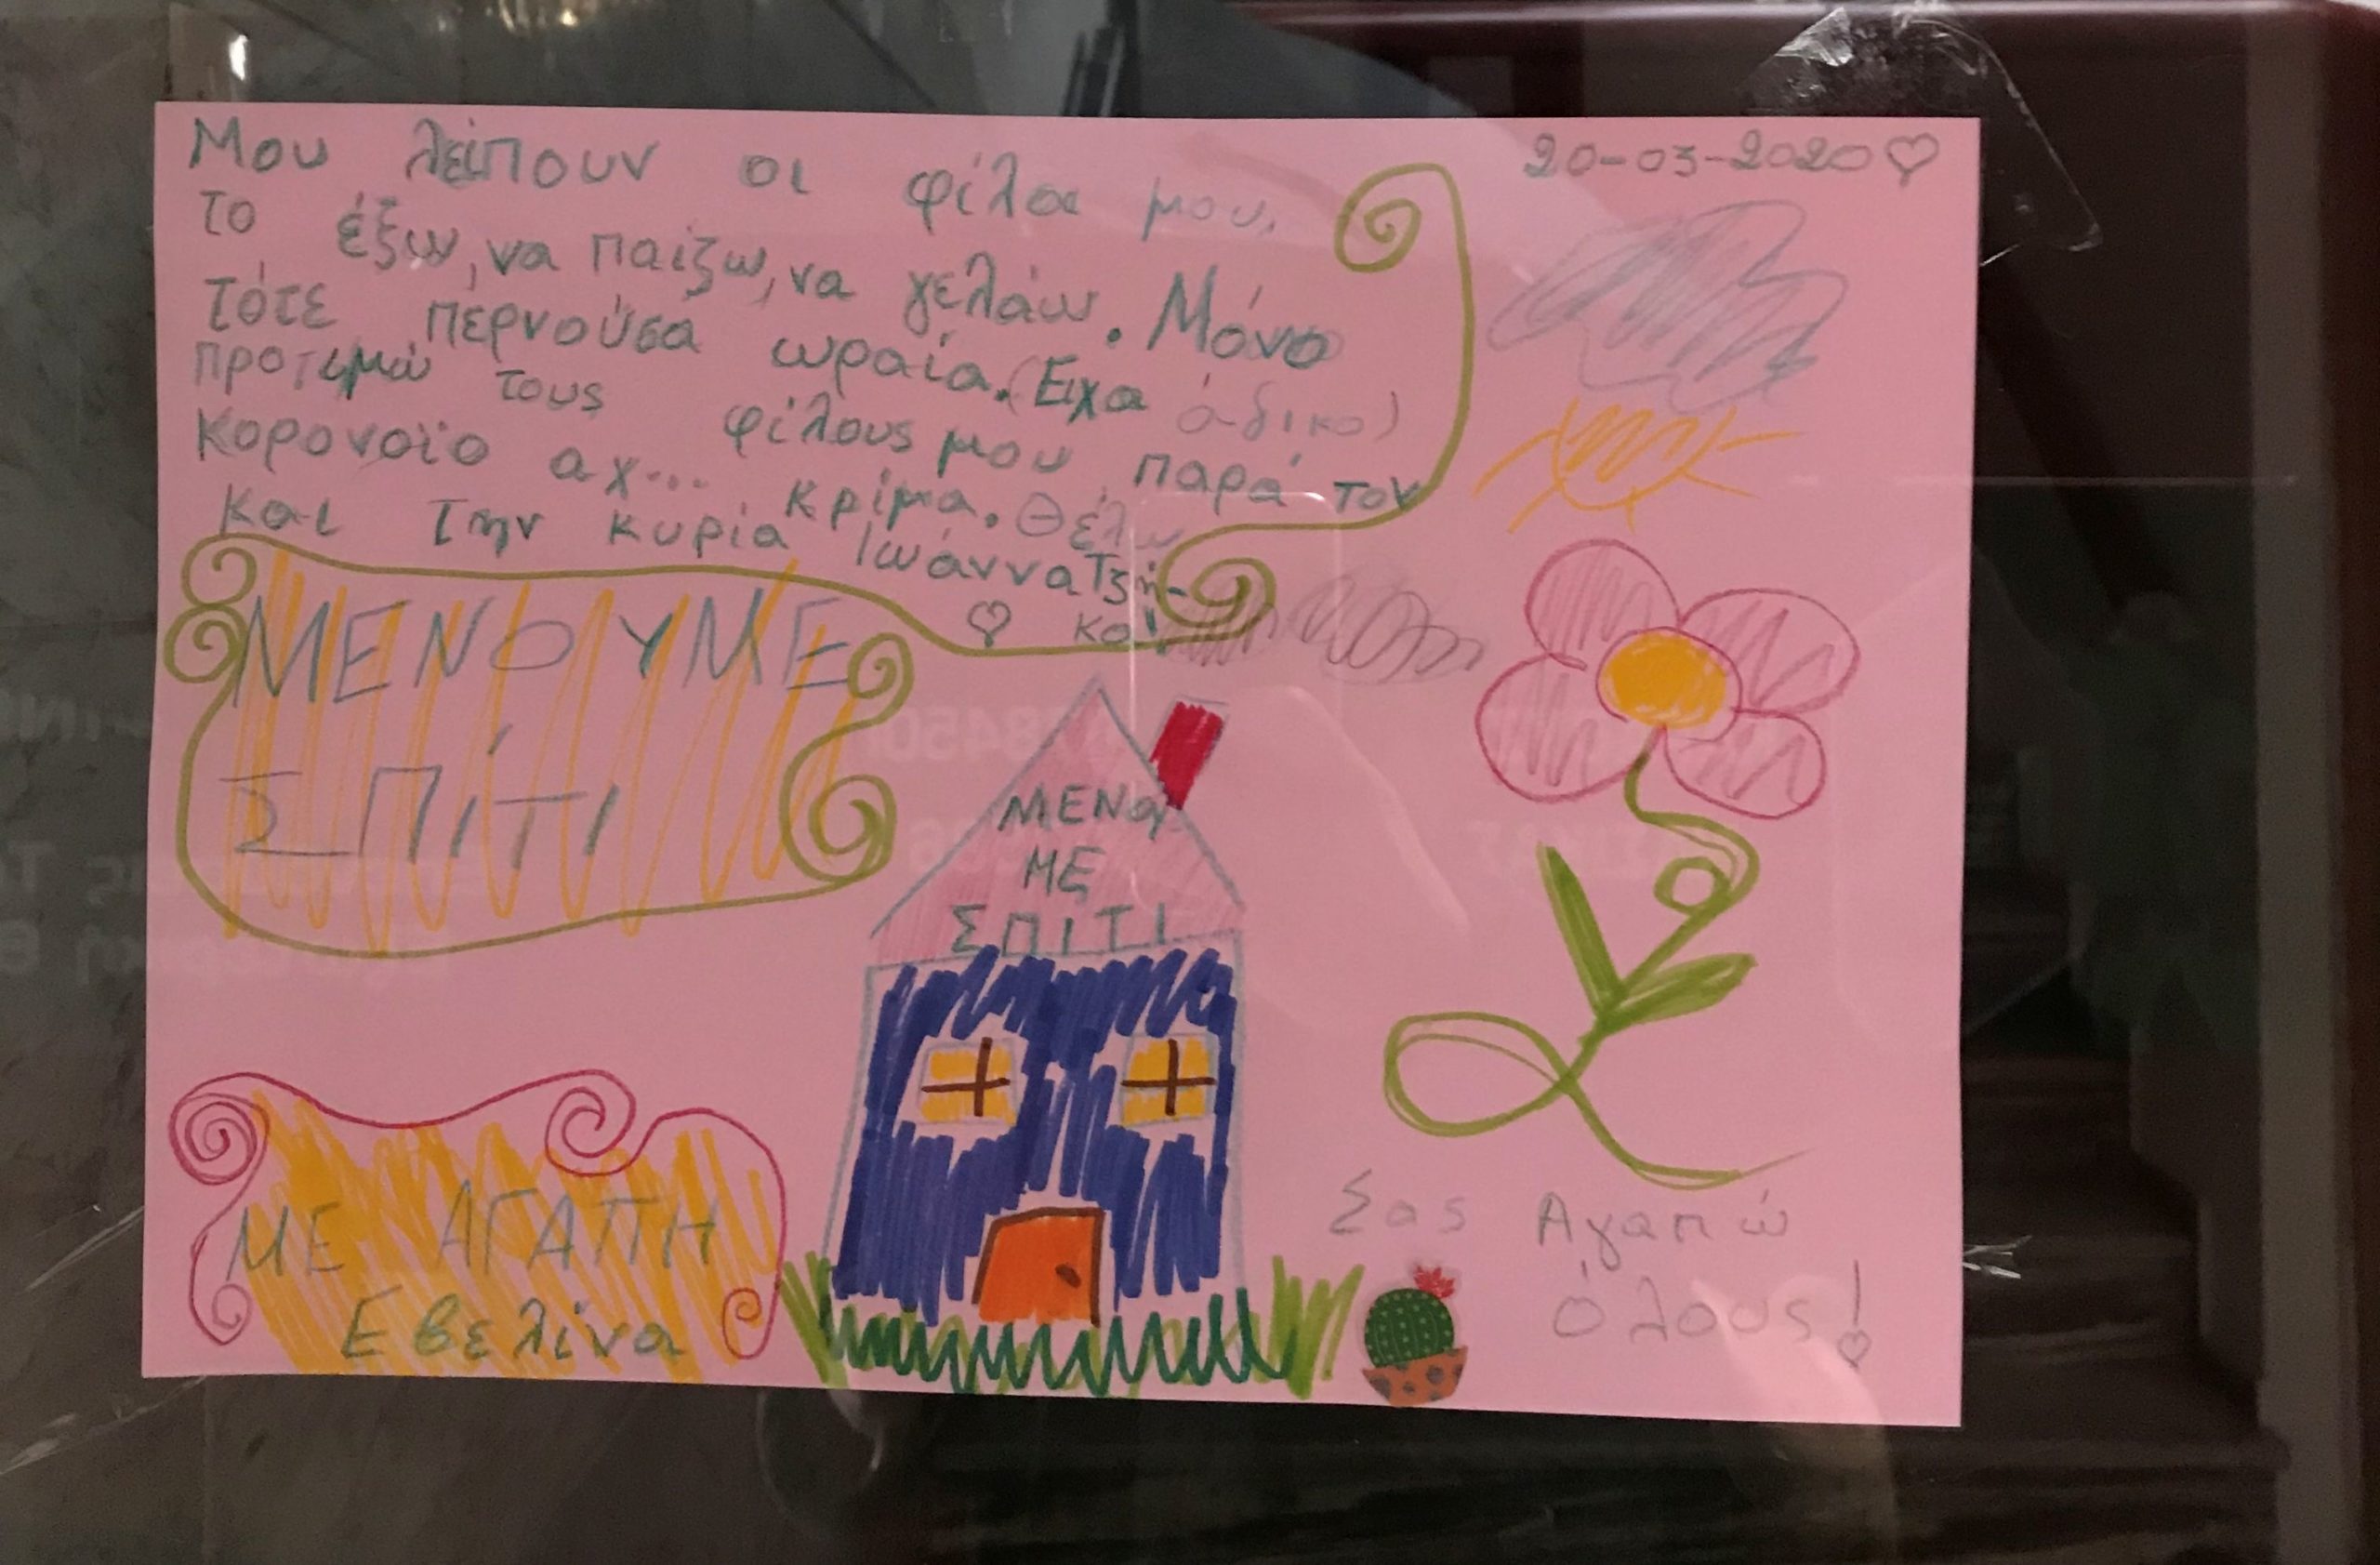 20-03-2020
Μου λείπουν οι φίλοι μου,
το έξω, να παίζω, να γελάω. Μόνο
τότε πέρνούσα ωραία. (Ειχα άδικο)
προτιμώ τους φίλους μου παρά τον
κορονοϊο αχ... κρίμα. Θέλω
και την κυρία Ιωάννα Τζή-
κου
ΜΕΝΟΥΜΕ
ΣΠΊΤΙ
ΜΕΝΟΥ
ΜΕ
ΣΠΙΤΙ
ΜΕ ΑΓΑΠΗ
Εβελίνα
Σας Αγαπώ
όλους!